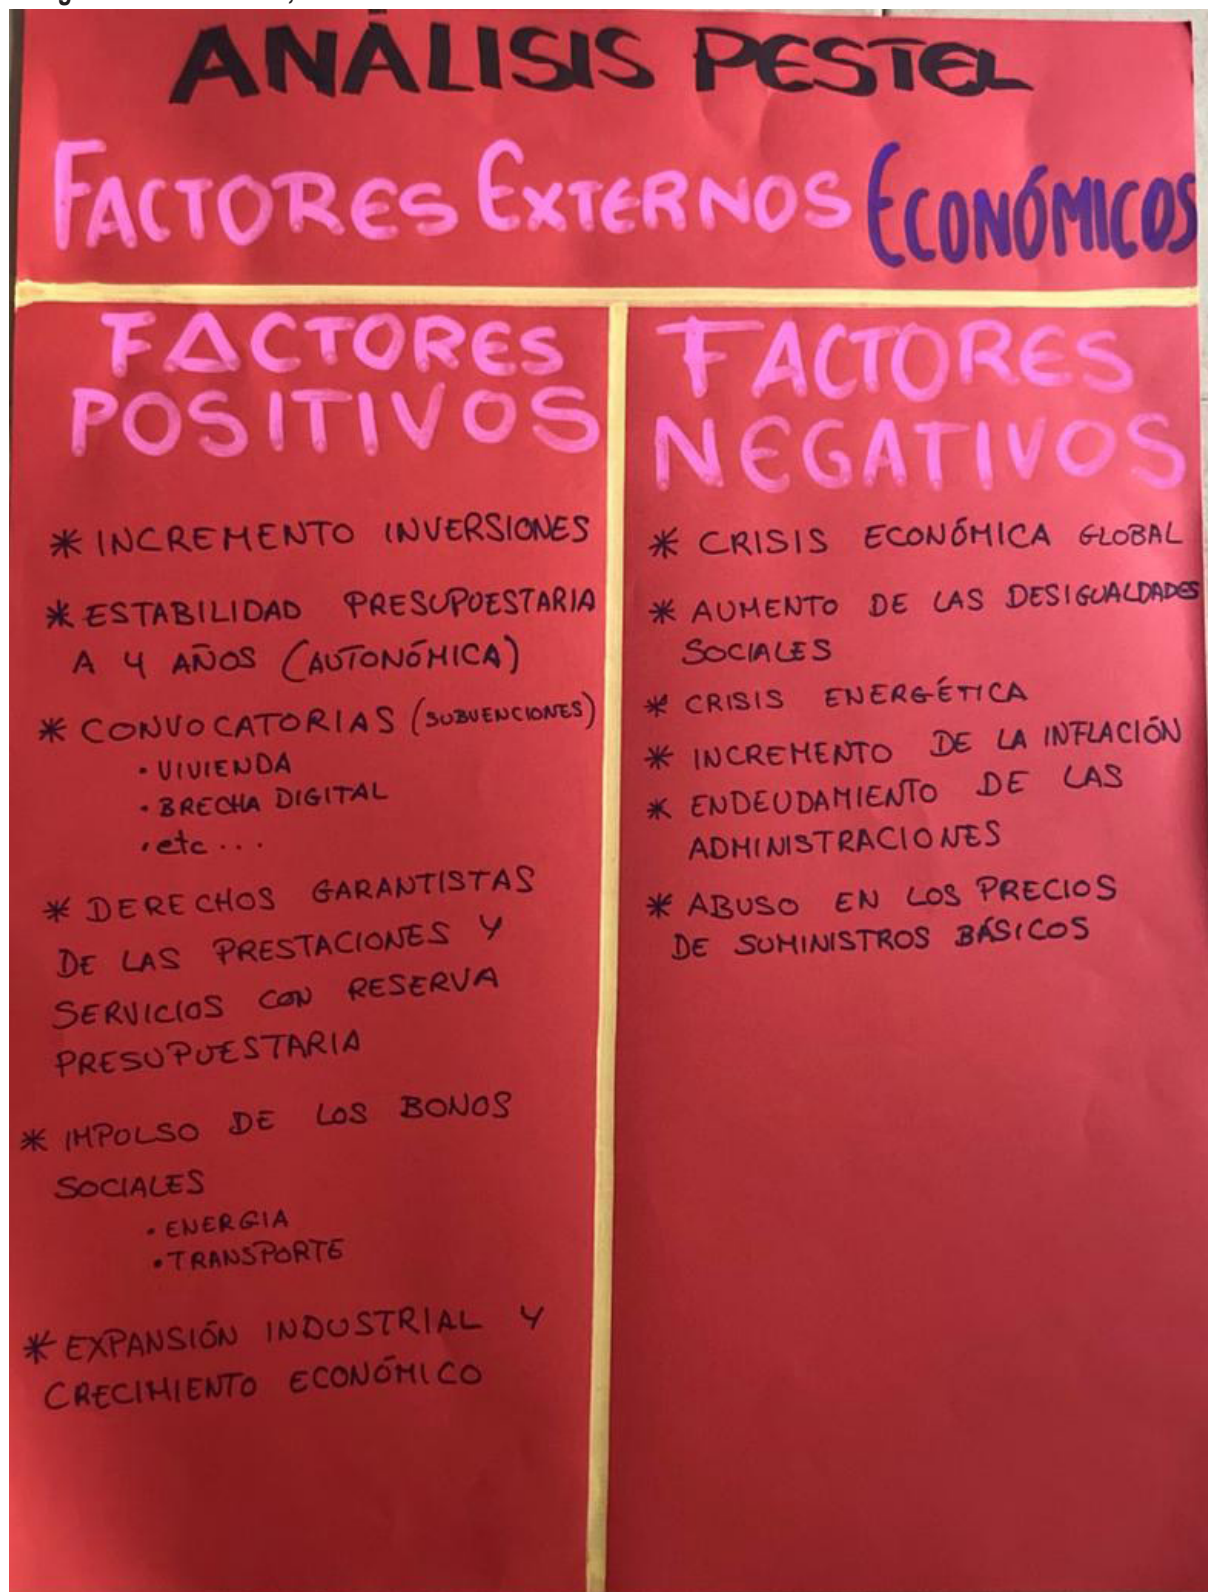 ANÁLISIS PESTEL
FACTORES EXTERNOS ECONÓMICOS
FACTORES
POSITIVOS
* INCREMENTO INVERSIONES
* ESTABILIDAD PRESUPUESTARIA
A 4 AÑOS (AUTONÓMICA)
* CONVOCATORIAS (SUBVENCIONES)
• VIVIENDA
• BRECHA DIGITAL
• etc...
* DERECHOS GARANTISTAS
DE LAS PRESTACIONES Y
SERVICIOS CON RESERVA
PRESUPUESTARIA
* IMPULSO DE LOS BONOS
SOCIALES
• ENERGIA
• TRANSPORTE
* EXPANSIÓN INDUSTRIAL Y
CRECIMIENTO ECONÓMICO
FACTORES
NEGATIVOS
* CRISIS ECONÓMICA GLOBAL
* AUMENTO DE LAS DESIGUALDADES
SOCIALES
* CRISIS ENERGÉTICA
* INCREMENTO DE LA INFLACIÓN
* ENDEUDAMIENTO DE LAS
ADMINISTRACIONES
* ABUSO EN LOS PRECIOS
DE SUMINISTROS BÁSICOS